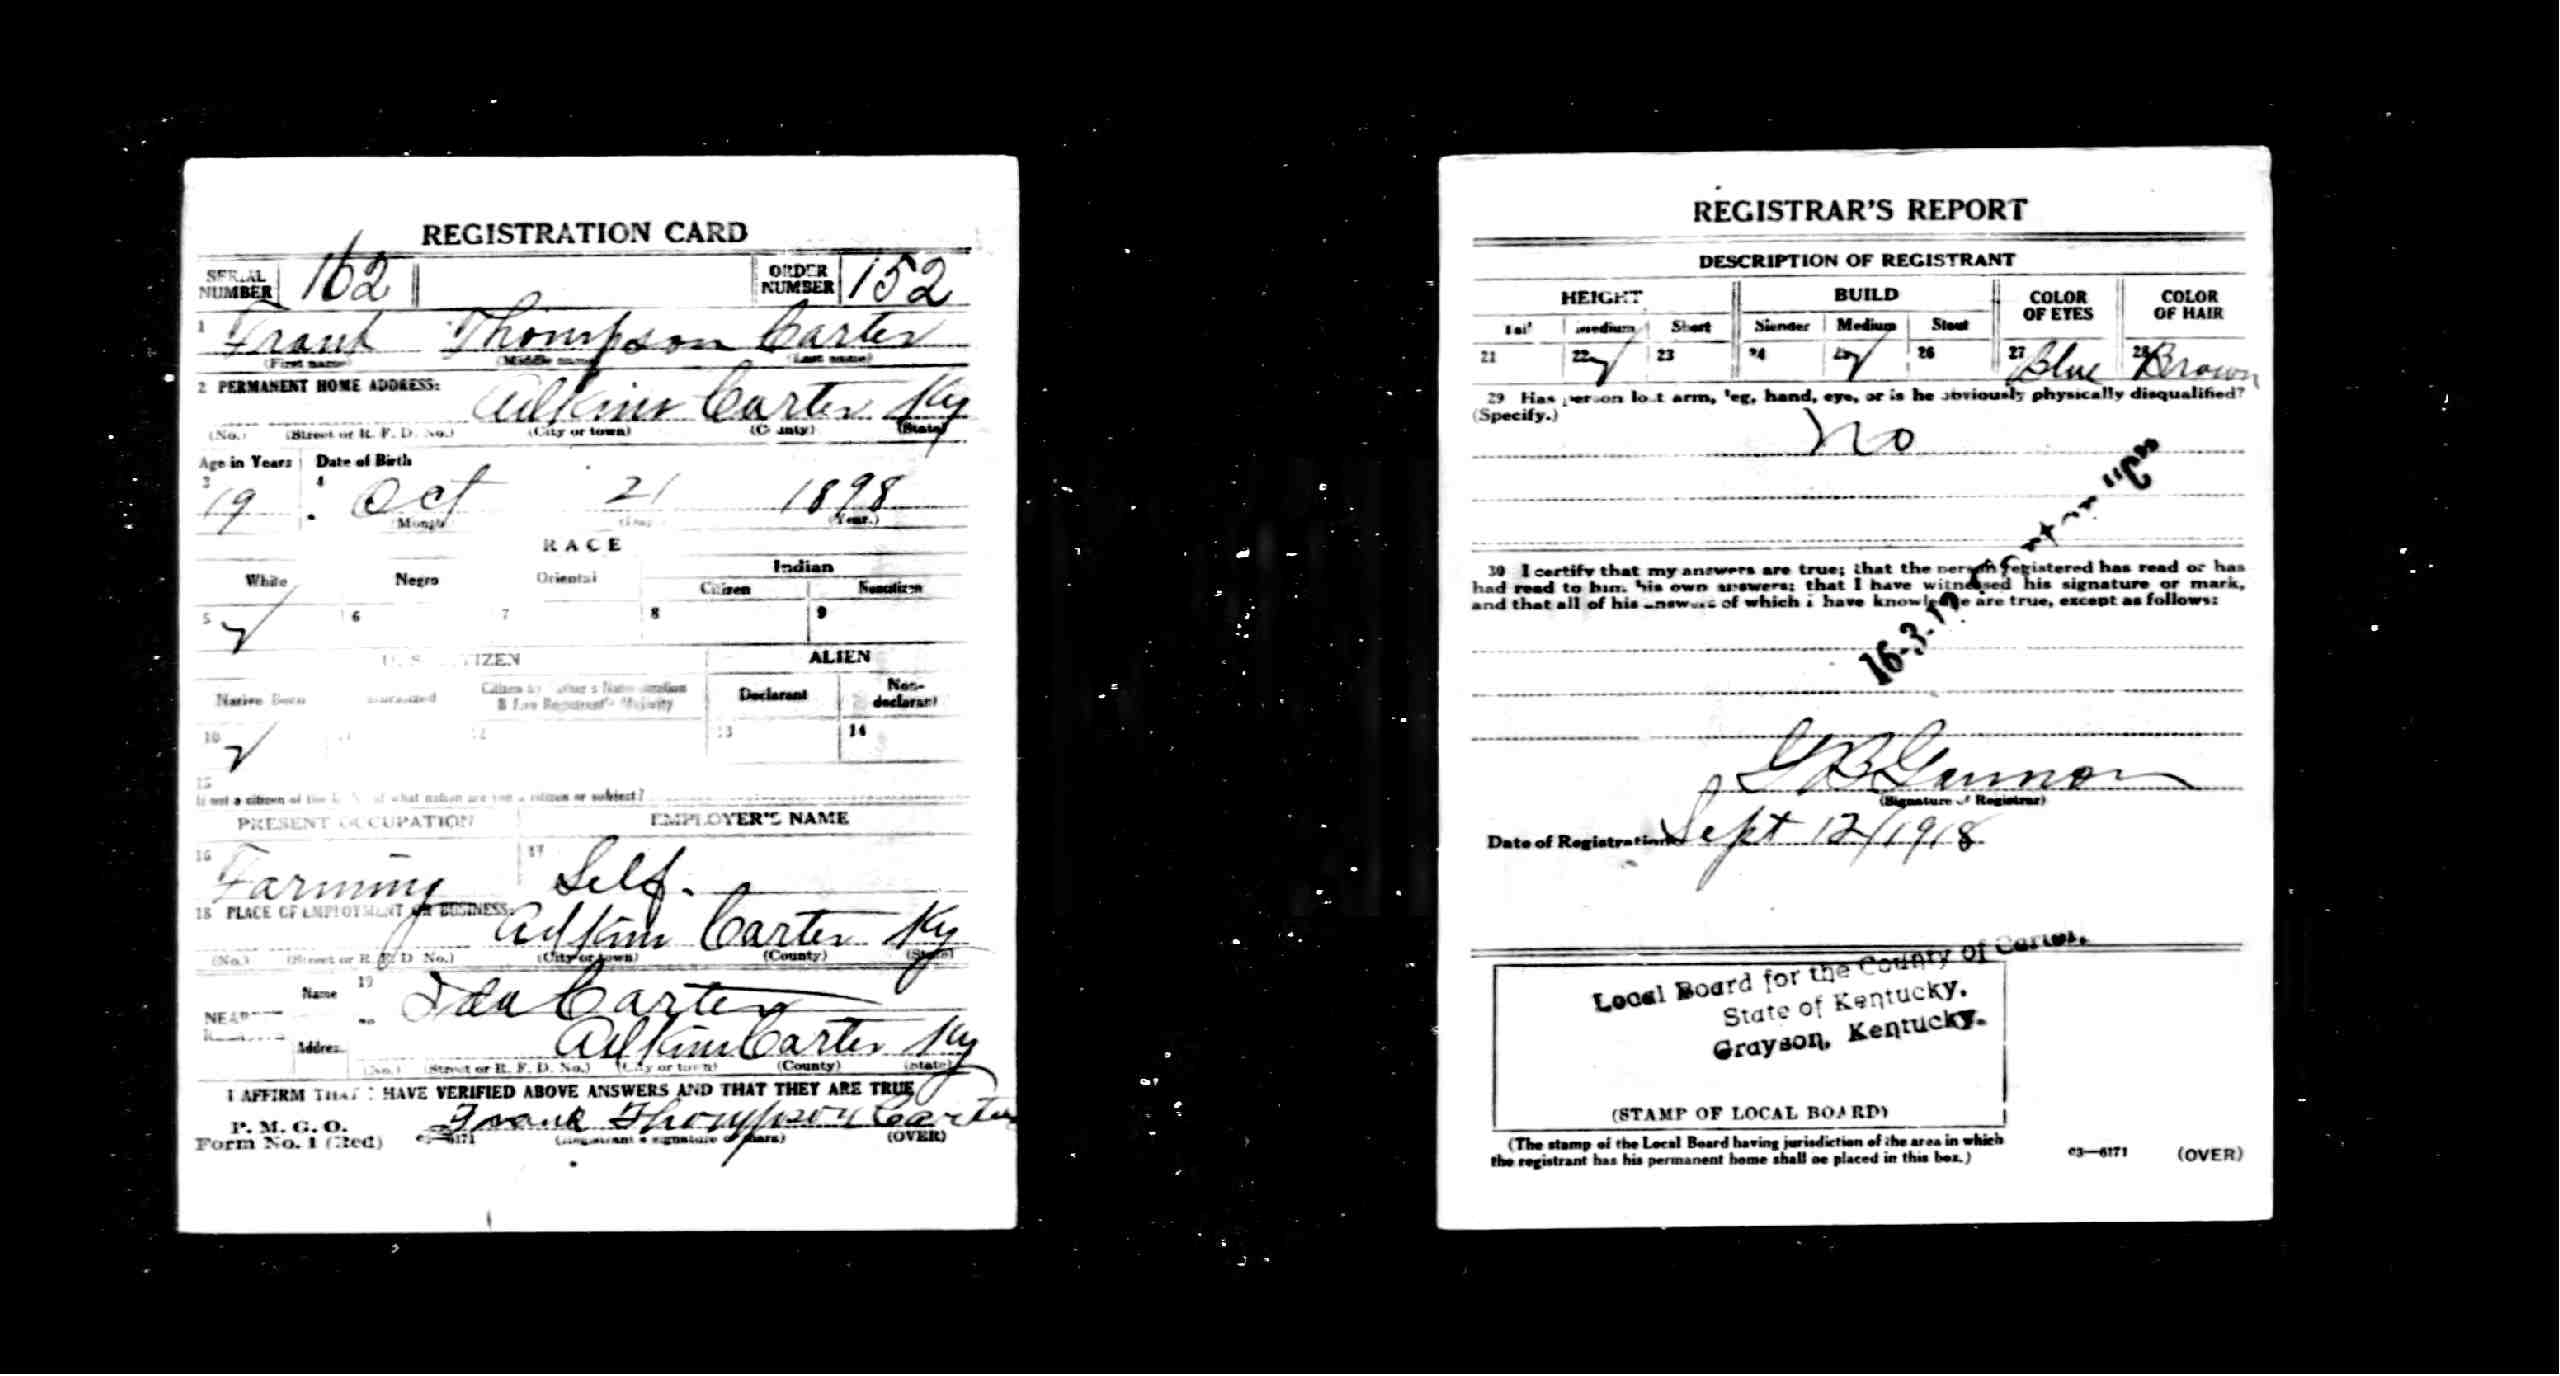 REGISTRATION CARD
SERIAL NUMBER 162 ORDER NUMBER 152
1 Frank Thompson Carter
(First name) (Middle name) (Last name)
2 PERMANENT HOME ADDRESS:
Adkins Carter Ky
(No.) (Street or R. F. D. No.) (City or town) (County) (State)
Age in Years Date of Birth
3 19 4 Oct 21 1898
(Month) (Day) (Year.)
RACE
White Negro Oriental Indian
Citizen Noncitizen
5 ✓ 6 7 8 9
U. S. CITIZEN ALIEN
Native Born Naturalized Citizen by Father's Naturalization Before Registrant's Majority Declarant Non-declarant
10 ✓ 11 12 13 14
15
If not a citizen of the U. S., of what nation are you a citizen or subject?
PRESENT OCCUPATION EMPLOYER'S NAME
16 Farming 17 Self.
18 PLACE OF EMPLOYMENT OR BUSINESS:
Adkins Carter Ky
(No.) (Street or R. F. D. No.) (City or town) (County) (State)
NEAREST Name 19 Ida Carter
Address Adkins Carter Ky
(No.) (Street or R. F. D. No.) (City or town) (County) (State)
I AFFIRM THAT I HAVE VERIFIED ABOVE ANSWERS AND THAT THEY ARE TRUE
P. M. G. O.
Form No. 1 (Red) 03—6171 Frank Thompson Carter
(Registrant's signature or mark) (OVER)
REGISTRAR'S REPORT
DESCRIPTION OF REGISTRANT
HEIGHT BUILD COLOR OF EYES COLOR OF HAIR
Tall Medium Short Slender Medium Stout
21 22 ✓ 23 24 25 ✓ 26 27 Blue 28 Brown
29 Has person lost arm, leg, hand, eye, or is he obviously physically disqualified?
(Specify.)
no
30 I certify that my answers are true; that the person registered has read or has
had read to him his own answers; that I have witnessed his signature or mark,
and that all of his answers of which I have knowledge are true, except as follows:
16-3-17 "C"
(Signature of Registrar)
Date of Registration Sept 12/1918
Local Board for the County of Carter,
State of Kentucky.
Grayson, Kentucky.
(STAMP OF LOCAL BOARD)
(The stamp of the Local Board having jurisdiction of the area in which
the registrant has his permanent home shall be placed in this box.)
03—6171 (OVER)